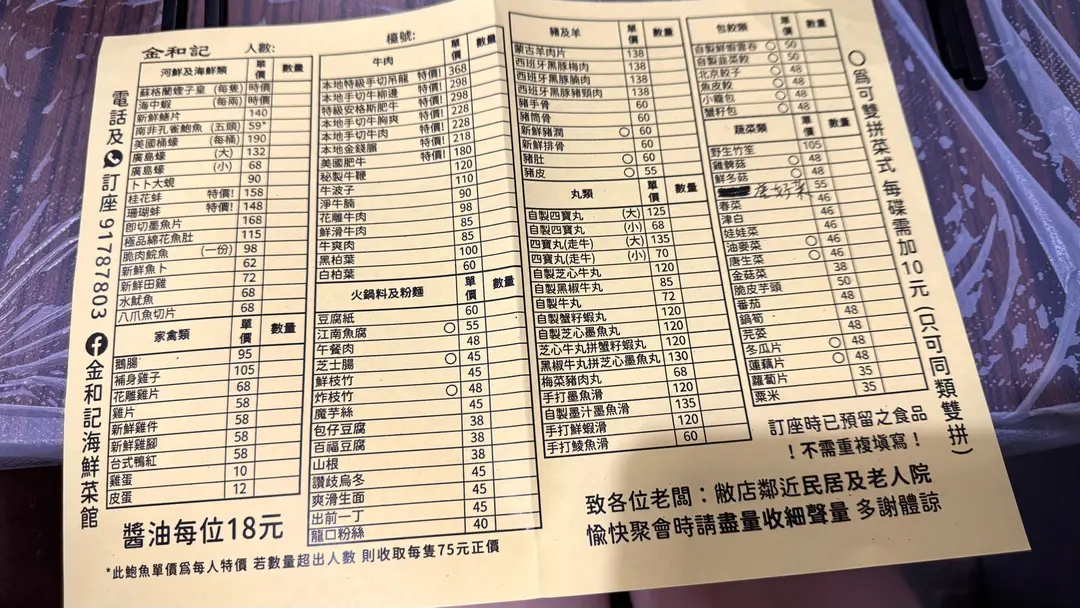 金和記 人數: 檯號:
河鮮及海鮮類 單價 數量
蘇格蘭蟶子皇 (每隻) 時價
海中蝦 (每兩) 時價
新鮮鱔片 140
南非孔雀鮑魚 (五頭) 59*
美國桶蠔 (每桶) 190
廣島蠔 (大) 132
廣島蠔 (小) 68
卜卜大蜆 90
桂花蚌 特價! 158
珊瑚蚌 特價! 148
即切墨魚片 168
極品綿花魚肚 115
脆肉鯇魚 (一份) 98
新鮮魚卜 62
新鮮田雞 72
水魷魚 68
八爪魚切片 68
家禽類 單價 數量
鵝腸 95
補身雞子 105
花雕雞片 68
雞片 58
新鮮雞件 58
新鮮雞腳 58
台式鴨紅 58
雞蛋 10
皮蛋 12
牛肉 單價 數量
本地特級手切吊龍 特價! 368
本地手切牛柳邊 特價! 298
特級安格斯肥牛 特價! 298
本地手切牛胸爽 特價! 228
本地手切牛肉 特價! 228
本地金錢腱 特價! 218
美國肥牛 180
秘製牛鞭 120
牛波子 110
淨牛腩 90
花雕牛肉 98
鮮滑牛肉 85
牛爽肉 85
黑柏葉 100
白柏葉 60
火鍋料及粉麵 單價 數量
豆腐紙 60
江南魚腐 ○ 55
午餐肉 48
芝士腸 ○ 45
鮮枝竹 45
炸枝竹 ○ 48
魔芋絲 45
包仔豆腐 38
百福豆腐 38
山根 38
讚岐烏冬 45
爽滑生面 45
出前一丁 45
龍口粉絲 40
豬及羊 單價 數量
蒙古羊肉片 138
西班牙黑豚梅肉 138
西班牙黑豚腩肉 138
西班牙黑豚豬頸肉 138
豬手骨 60
豬筒骨 60
新鮮豬潤 ○ 60
新鮮排骨 60
豬肚 ○ 60
豬皮 ○ 55
丸類 單價 數量
自製四寶丸 (大) 125
自製四寶丸 (小) 68
四寶丸(走牛) (大) 135
四寶丸(走牛) (小) 70
自製芝心牛丸 120
自製黑椒牛丸 85
自製牛丸 72
自製蟹籽蝦丸 120
自製芝心墨魚丸 120
芝心牛丸拼蟹籽蝦丸 120
黑椒牛丸拼芝心墨魚丸 130
梅菜豬肉丸 68
手打墨魚滑 120
自製墨汁墨魚滑 135
手打鮮蝦滑 120
手打鯪魚滑 60
包餃類 單價 數量
自製鮮蝦雲吞 ○ 50
自製韮菜餃 ○ 50
北京餃子 ○ 48
魚皮餃 ○ 48
小籠包 ○ 48
蟹籽包 ○ 48
蔬菜類 單價 數量
野生竹笙 105
雞髀菇 ○ 48
鮮冬菇 ○ 48
55
春菜 46
津白 46
娃娃菜 46
油麥菜 ○ 46
唐生菜 ○ 46
金菇菜 38
脆皮芋頭 50
番茄 48
鍋筍 48
芫荽 48
冬瓜片 ○ 48
蓮藕片 ○ 48
蘿蔔片 35
粟米 35
電話及訂座 91787803 金和記海鮮菜館
○為可雙拼菜式 每碟需加10元 (只可同類雙拼)
醬油每位18元
*此鮑魚單價為每人特價 若數量超出人數 則收取每隻75元正價
訂座時已預留之食品
!不需重複填寫!
致各位老闆:敝店鄰近民居及老人院
愉快聚會時請盡量收細聲量 多謝體諒